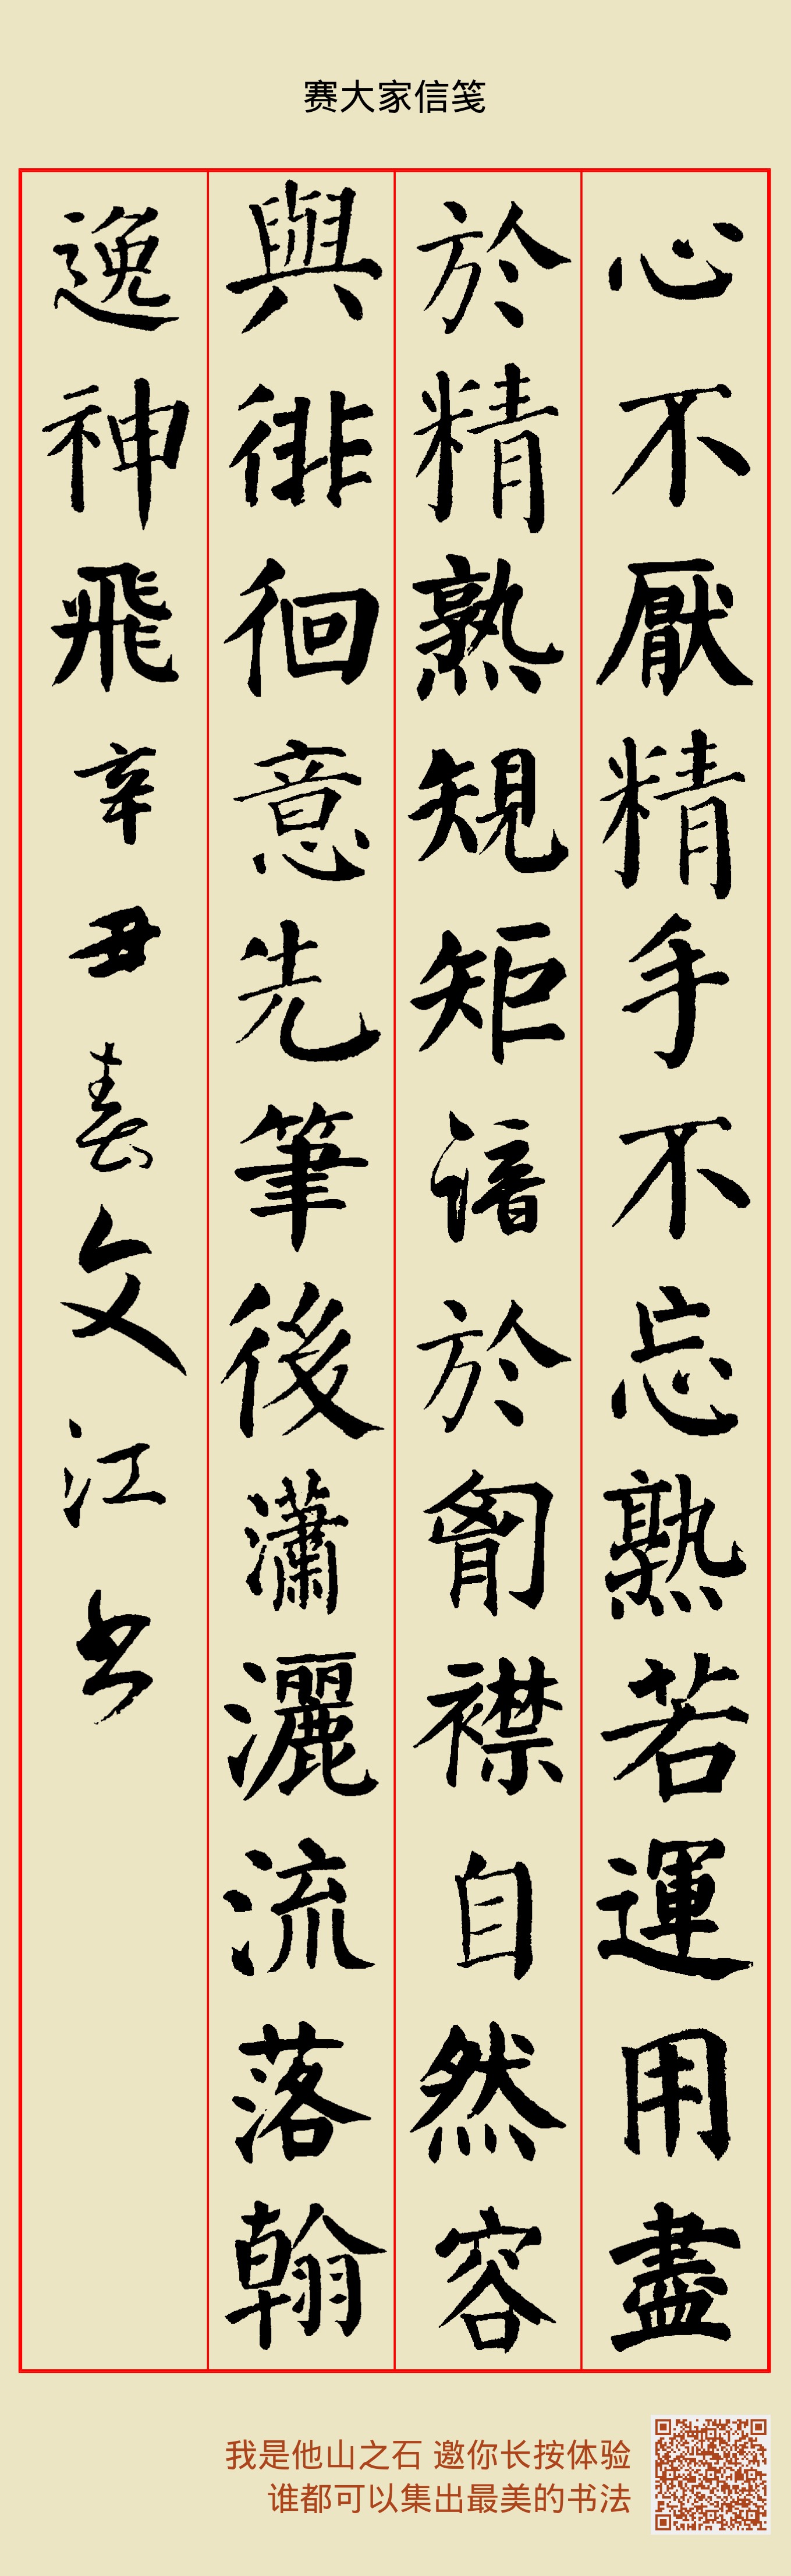 赛大家信笺
心不厭精手不忘熟若運用盡
於精熟規矩諳於胷襟自然容
與徘徊意先筆後瀟灑流落翰
逸神飛辛丑春文江书
我是他山之石 邀你长按体验
谁都可以集出最美的书法